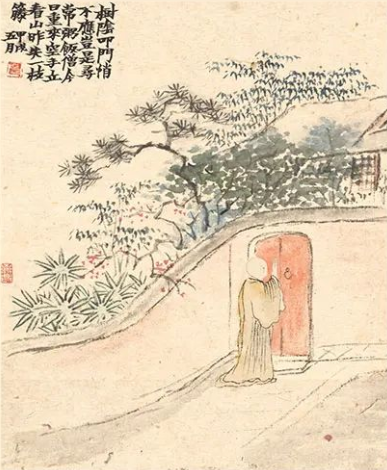 樹陰叩門悄
不應豈是尋
常粥飯僧今
日重來空手立
看山昨失一枝
籐